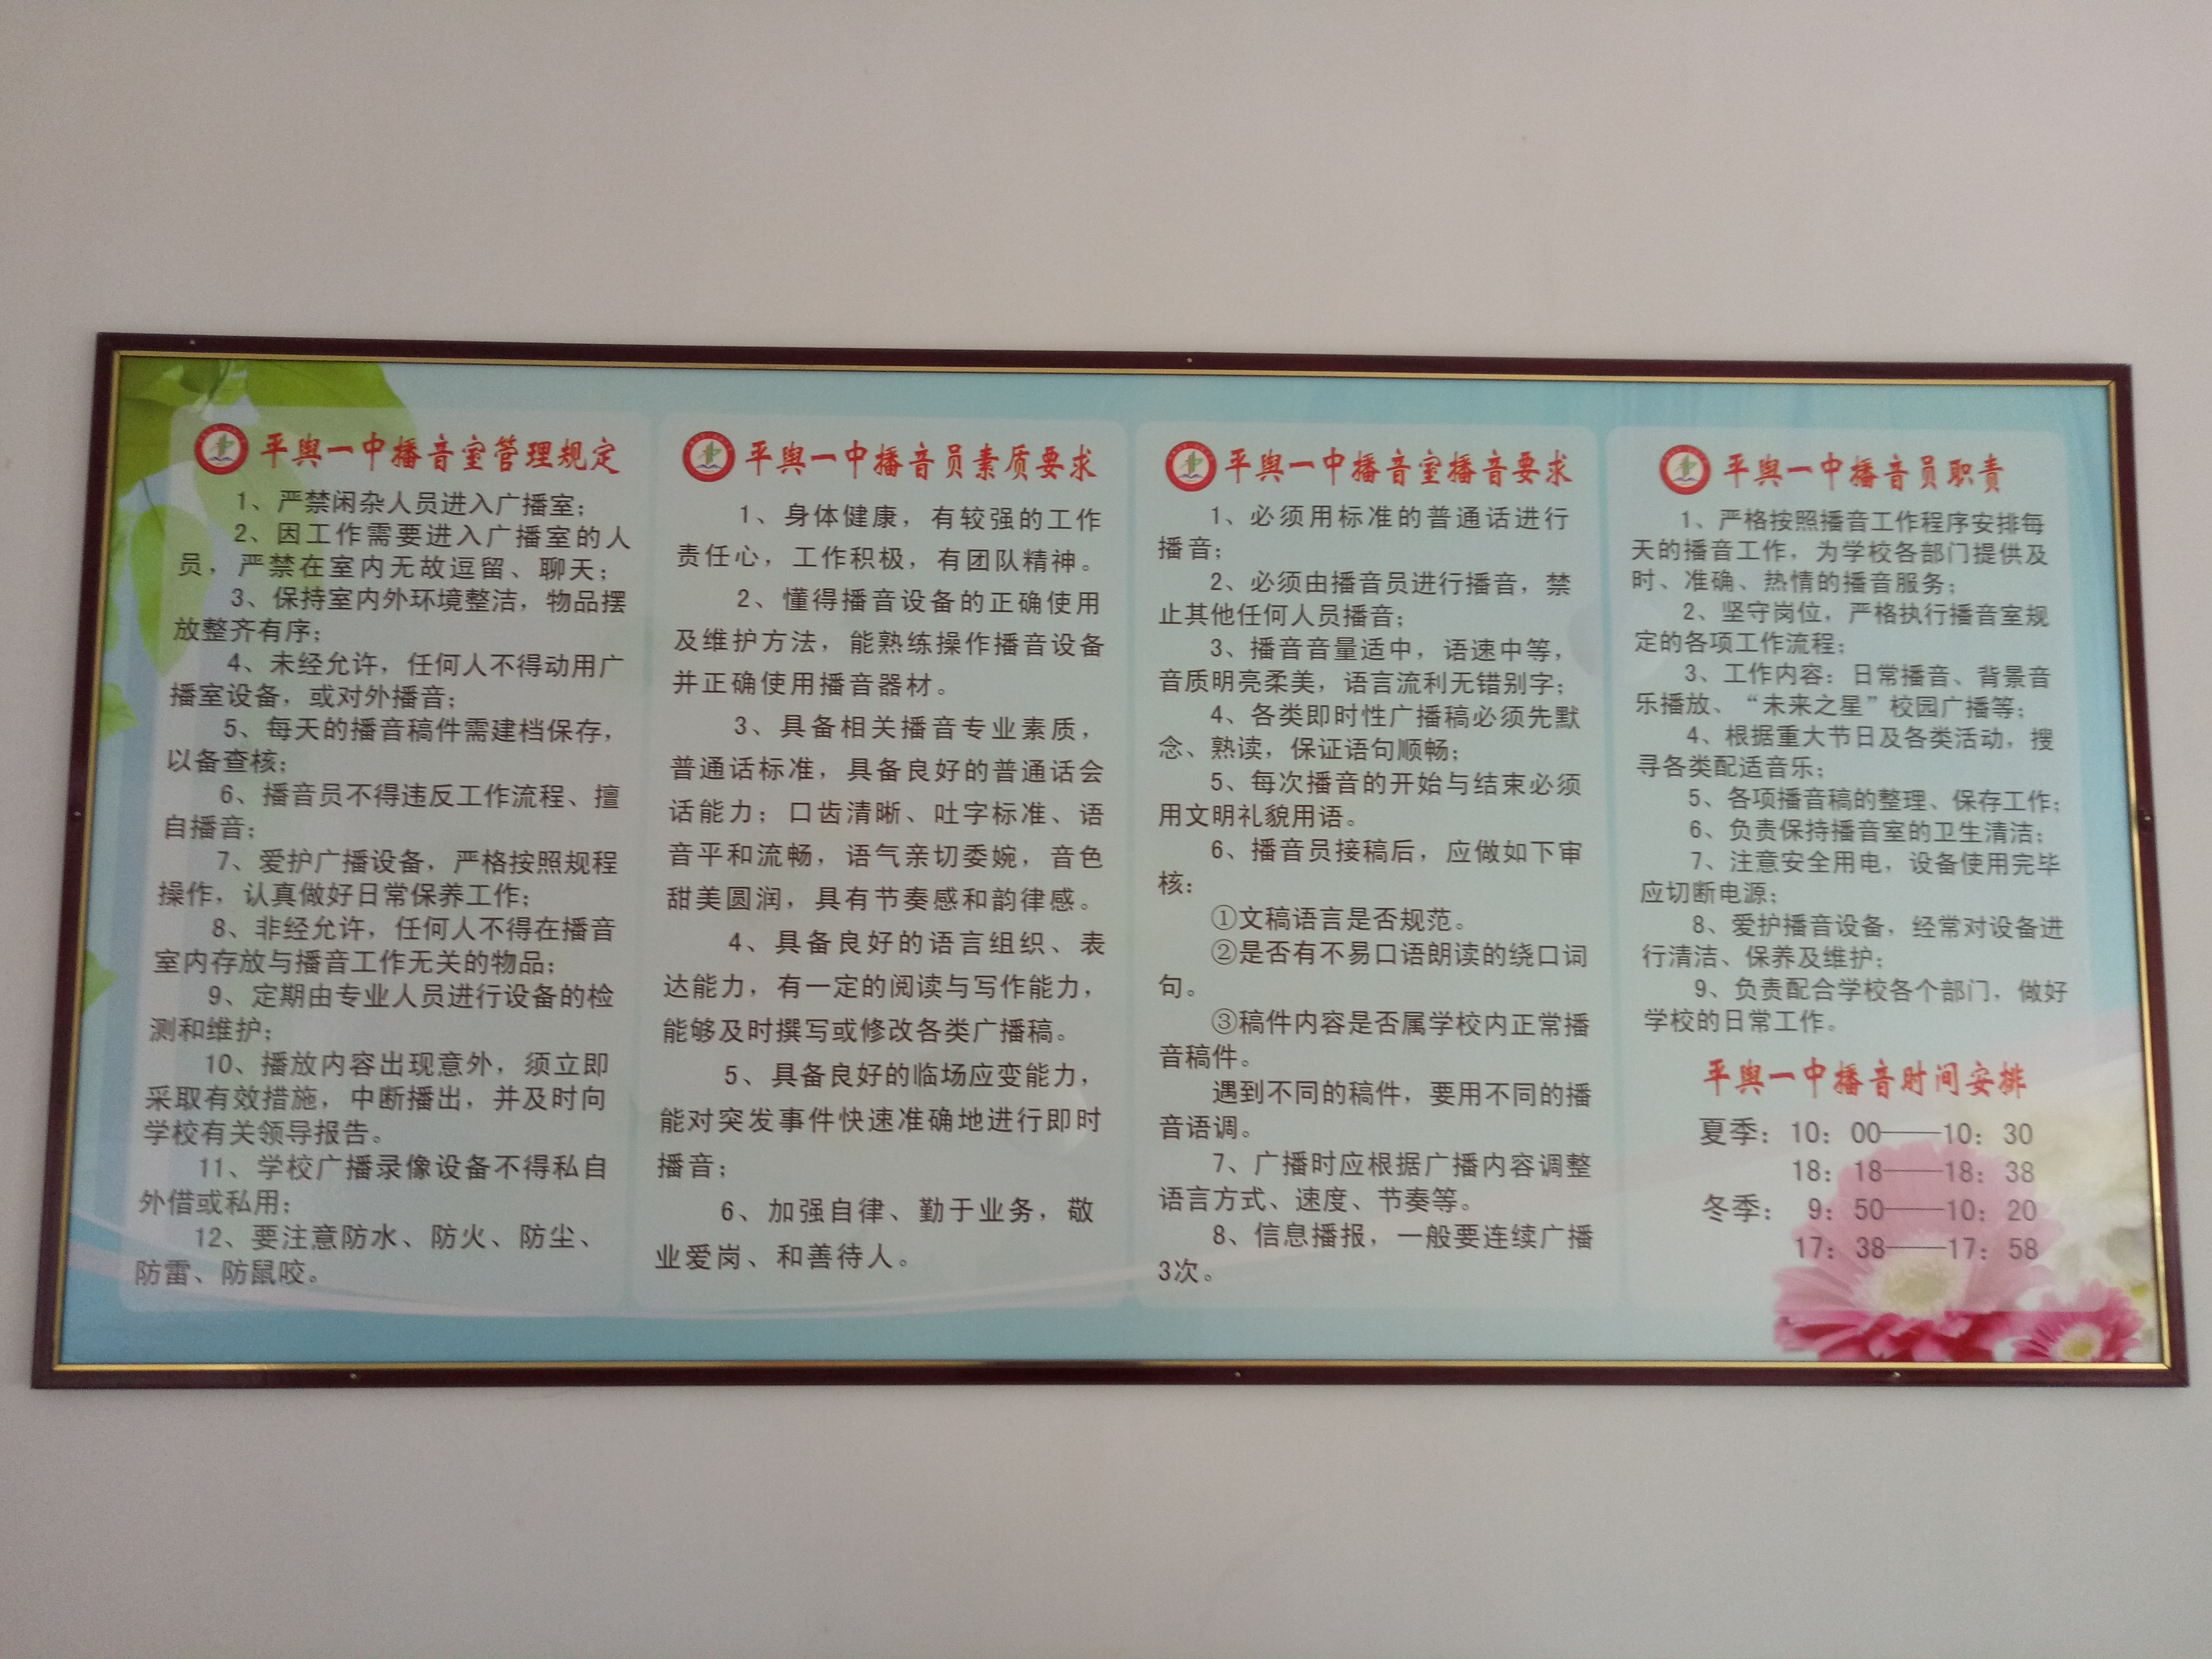 平舆一中播音室管理规定
1、严禁闲杂人员进入广播室；
2、因工作需要进入广播室的人
员，严禁在室内无故逗留、聊天；
3、保持室内外环境整洁，物品摆
放整齐有序；
4、未经允许，任何人不得动用广
播室设备，或对外播音；
5、每天的播音稿件需建档保存，
以备查核；
6、播音员不得违反工作流程、擅
自播音；
7、爱护广播设备，严格按照规程
操作，认真做好日常保养工作；
8、非经允许，任何人不得在播音
室内存放与播音工作无关的物品；
9、定期由专业人员进行设备的检
测和维护；
10、播放内容出现意外，须立即
采取有效措施，中断播出，并及时向
学校有关领导报告。
11、学校广播录像设备不得私自
外借或私用；
12、要注意防水、防火、防尘、
防雷、防鼠咬。
平舆一中播音员素质要求
1、身体健康，有较强的工作
责任心，工作积极，有团队精神。
2、懂得播音设备的正确使用
及维护方法，能熟练操作播音设备
并正确使用播音器材。
3、具备相关播音专业素质，
普通话标准，具备良好的普通话会
话能力；口齿清晰、吐字标准、语
音平和流畅，语气亲切委婉，音色
甜美圆润，具有节奏感和韵律感。
4、具备良好的语言组织、表
达能力，有一定的阅读与写作能力，
能够及时撰写或修改各类广播稿。
5、具备良好的临场应变能力，
能对突发事件快速准确地进行即时
播音；
6、加强自律、勤于业务，敬
业爱岗、和善待人。
平舆一中播音室播音要求
1、必须用标准的普通话进行
播音；
2、必须由播音员进行播音，禁
止其他任何人员播音；
3、播音音量适中，语速中等，
音质明亮柔美，语言流利无错别字；
4、各类即时性广播稿必须先默
念、熟读，保证语句顺畅；
5、每次播音的开始与结束必须
用文明礼貌用语。
6、播音员接稿后，应做如下审
核：
①文稿语言是否规范。
②是否有不易口语朗读的绕口词
句。
③稿件内容是否属学校内正常播
音稿件。
遇到不同的稿件，要用不同的播
音语调。
7、广播时应根据广播内容调整
语言方式、速度、节奏等。
8、信息播报，一般要连续广播
3次。
平舆一中播音员职责
1、严格按照播音工作程序安排每
天的播音工作，为学校各部门提供及
时、准确、热情的播音服务；
2、坚守岗位，严格执行播音室规
定的各项工作流程；
3、工作内容：日常播音、背景音
乐播放、“未来之星”校园广播等；
4、根据重大节日及各类活动，搜
寻各类配适音乐；
5、各项播音稿的整理、保存工作；
6、负责保持播音室的卫生清洁；
7、注意安全用电，设备使用完毕
应切断电源；
8、爱护播音设备，经常对设备进
行清洁、保养及维护；
9、负责配合学校各个部门，做好
学校的日常工作。
平舆一中播音时间安排
夏季：10：00——10：30
18：18——18：38
冬季： 9：50——10：20
17：38——17：58